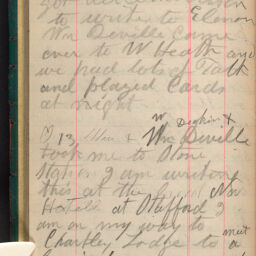 to write to Elenor
Wm Deville came
over to W Heath and
we had lots of Talk
and played Cards
at night
W Deakin &
13 Wm Deville
took me to Stone
Station I am writing
this at the
Hotell at Stafford I
am on my way to
Chartley Lodge to meet a